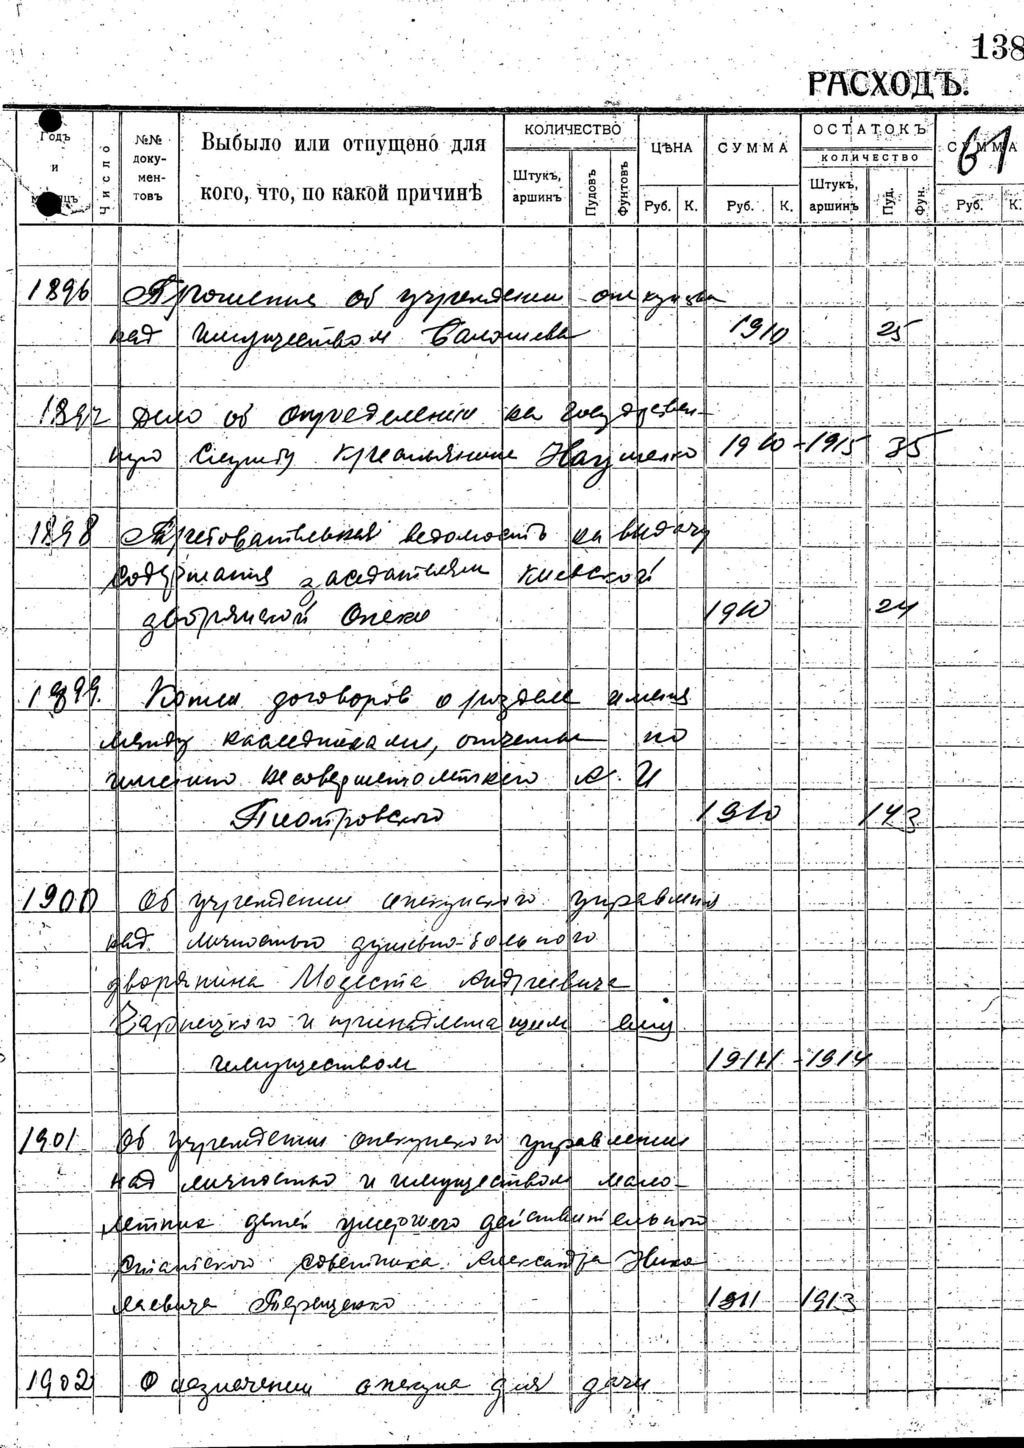 138
РАСХОДЪ.
61
Годъ и мѣсяцъ
Число
№№ доку-мен-товъ
Выбыло или отпущено для
кого, что, по какой причинѣ
КОЛИЧЕСТВО
Штукъ, аршинъ
Пудовъ
Фунтовъ
ЦѢНА
Руб. К.
СУММА
Руб. К.
ОСТАТОКЪ
КОЛИЧЕСТВО
Штукъ, аршинъ
Пуд.
Фун.
СУММА
Руб. К.
1896 Прошение об учреждении опекунства
над имуществом 1910 25
1897 Дело об определении на государствен-
ную службу крестьянина Науменко 1910-1915 35
1898 Требовательная ведомость на выдачу
содержания заседателям Киевской
дворянской Опеки 1910 24
1899. Копии договоров о разделе имения
между наследниками, отчеты по
имению несовершеннолетнего А. И
Пиотровского 1910 143
1900 Об учреждении опекунского управления
над личностью душевно-больного
дворянина Модеста Андреевича
Чарнецкого и принадлежащим ему
имуществом 1911-1914
1901 Об учреждении опекунского управления
над личностью и имуществом мало-
летних детей умершего действительного
статского советника Александра Нико
лаевича Терещенко 1911 1913
1902 О назначении опекуна для дачи